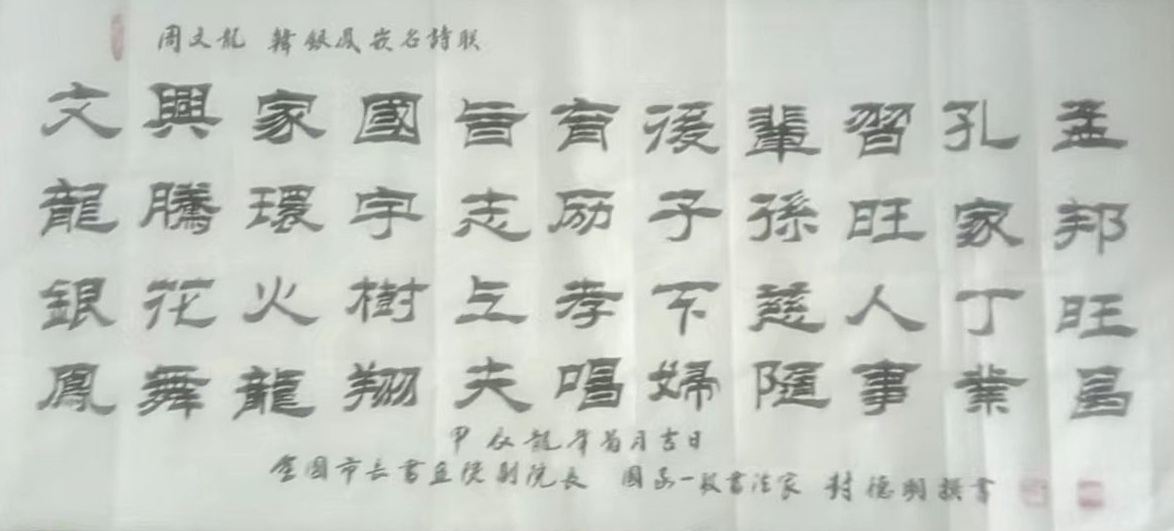 周文龍 韓銀凤嵌名詩联
文興家國旨育後輩習孔孟
龍騰環宇志励子孫旺家邦
銀花火樹上孝下慈人丁旺
鳳舞龍翔夫唱婦隨事業昌
甲辰龍年月吉日
全国市长書画院副院长 国家一级書法家 封德明撰書